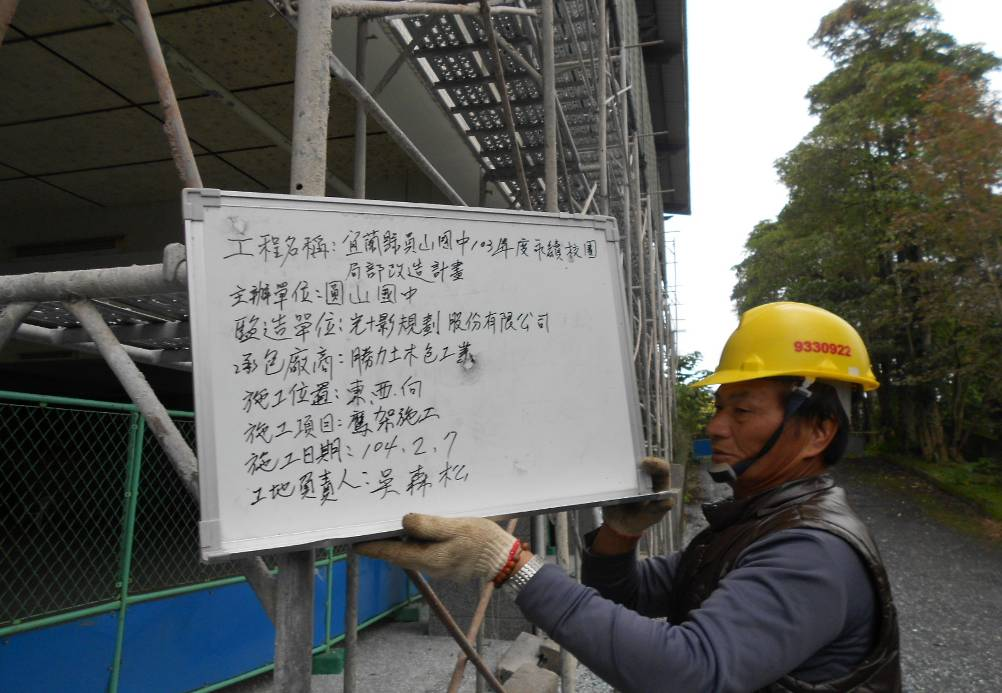 工程名稱：宜蘭縣員山國中103年度永續校園
局部改造計畫
主辦單位：圓山國中
監造單位：光+影規劃股份有限公司
承包廠商：勝力土木包工業
施工位置：東.西.向
施工項目：鷹架施工
施工日期：104.2.7
工地負責人：吳森松
9330922